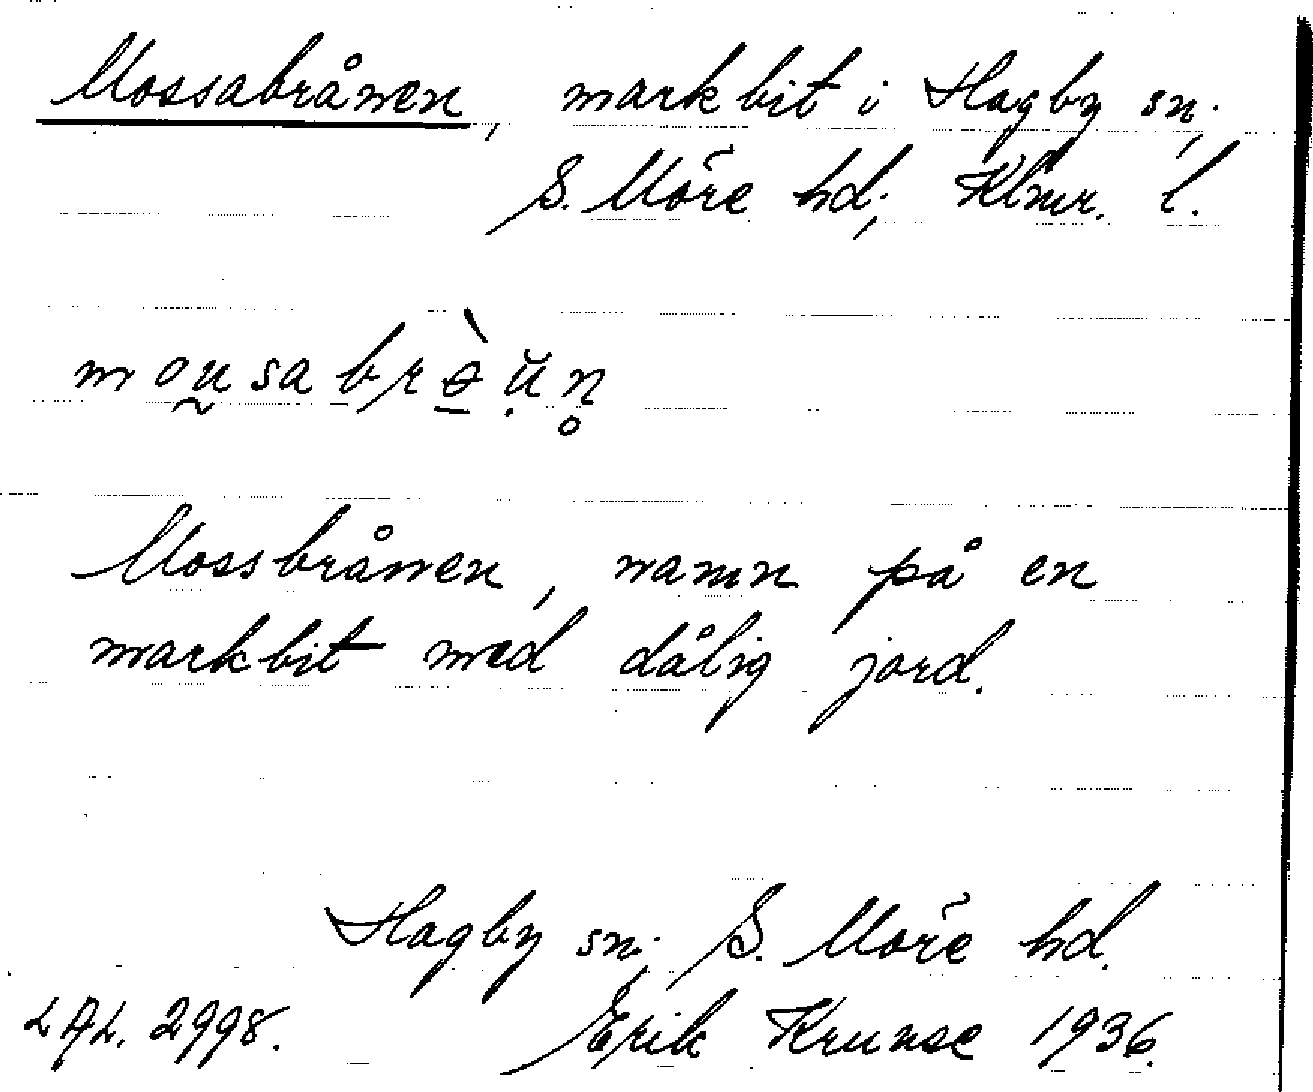 Mossabrånen, markbit i Hagby sn;
S. Möre hd; Klmr. l.
Mossbrånen, namn på en
markbit med dålig jord.
Hagby sn; S. Möre hd.
LAL. 2998. Erik Krunse 1936.